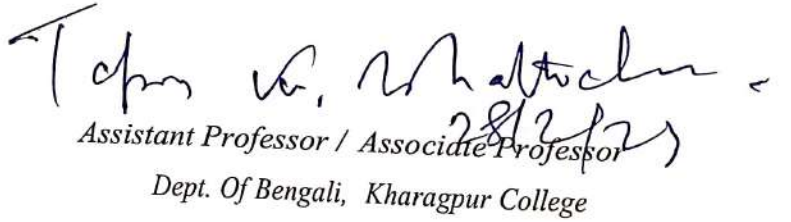 Tapan Kr. Bhattach
28/2/23
Assistant Professor / Associate Professor
Dept. Of Bengali, Kharagpur College